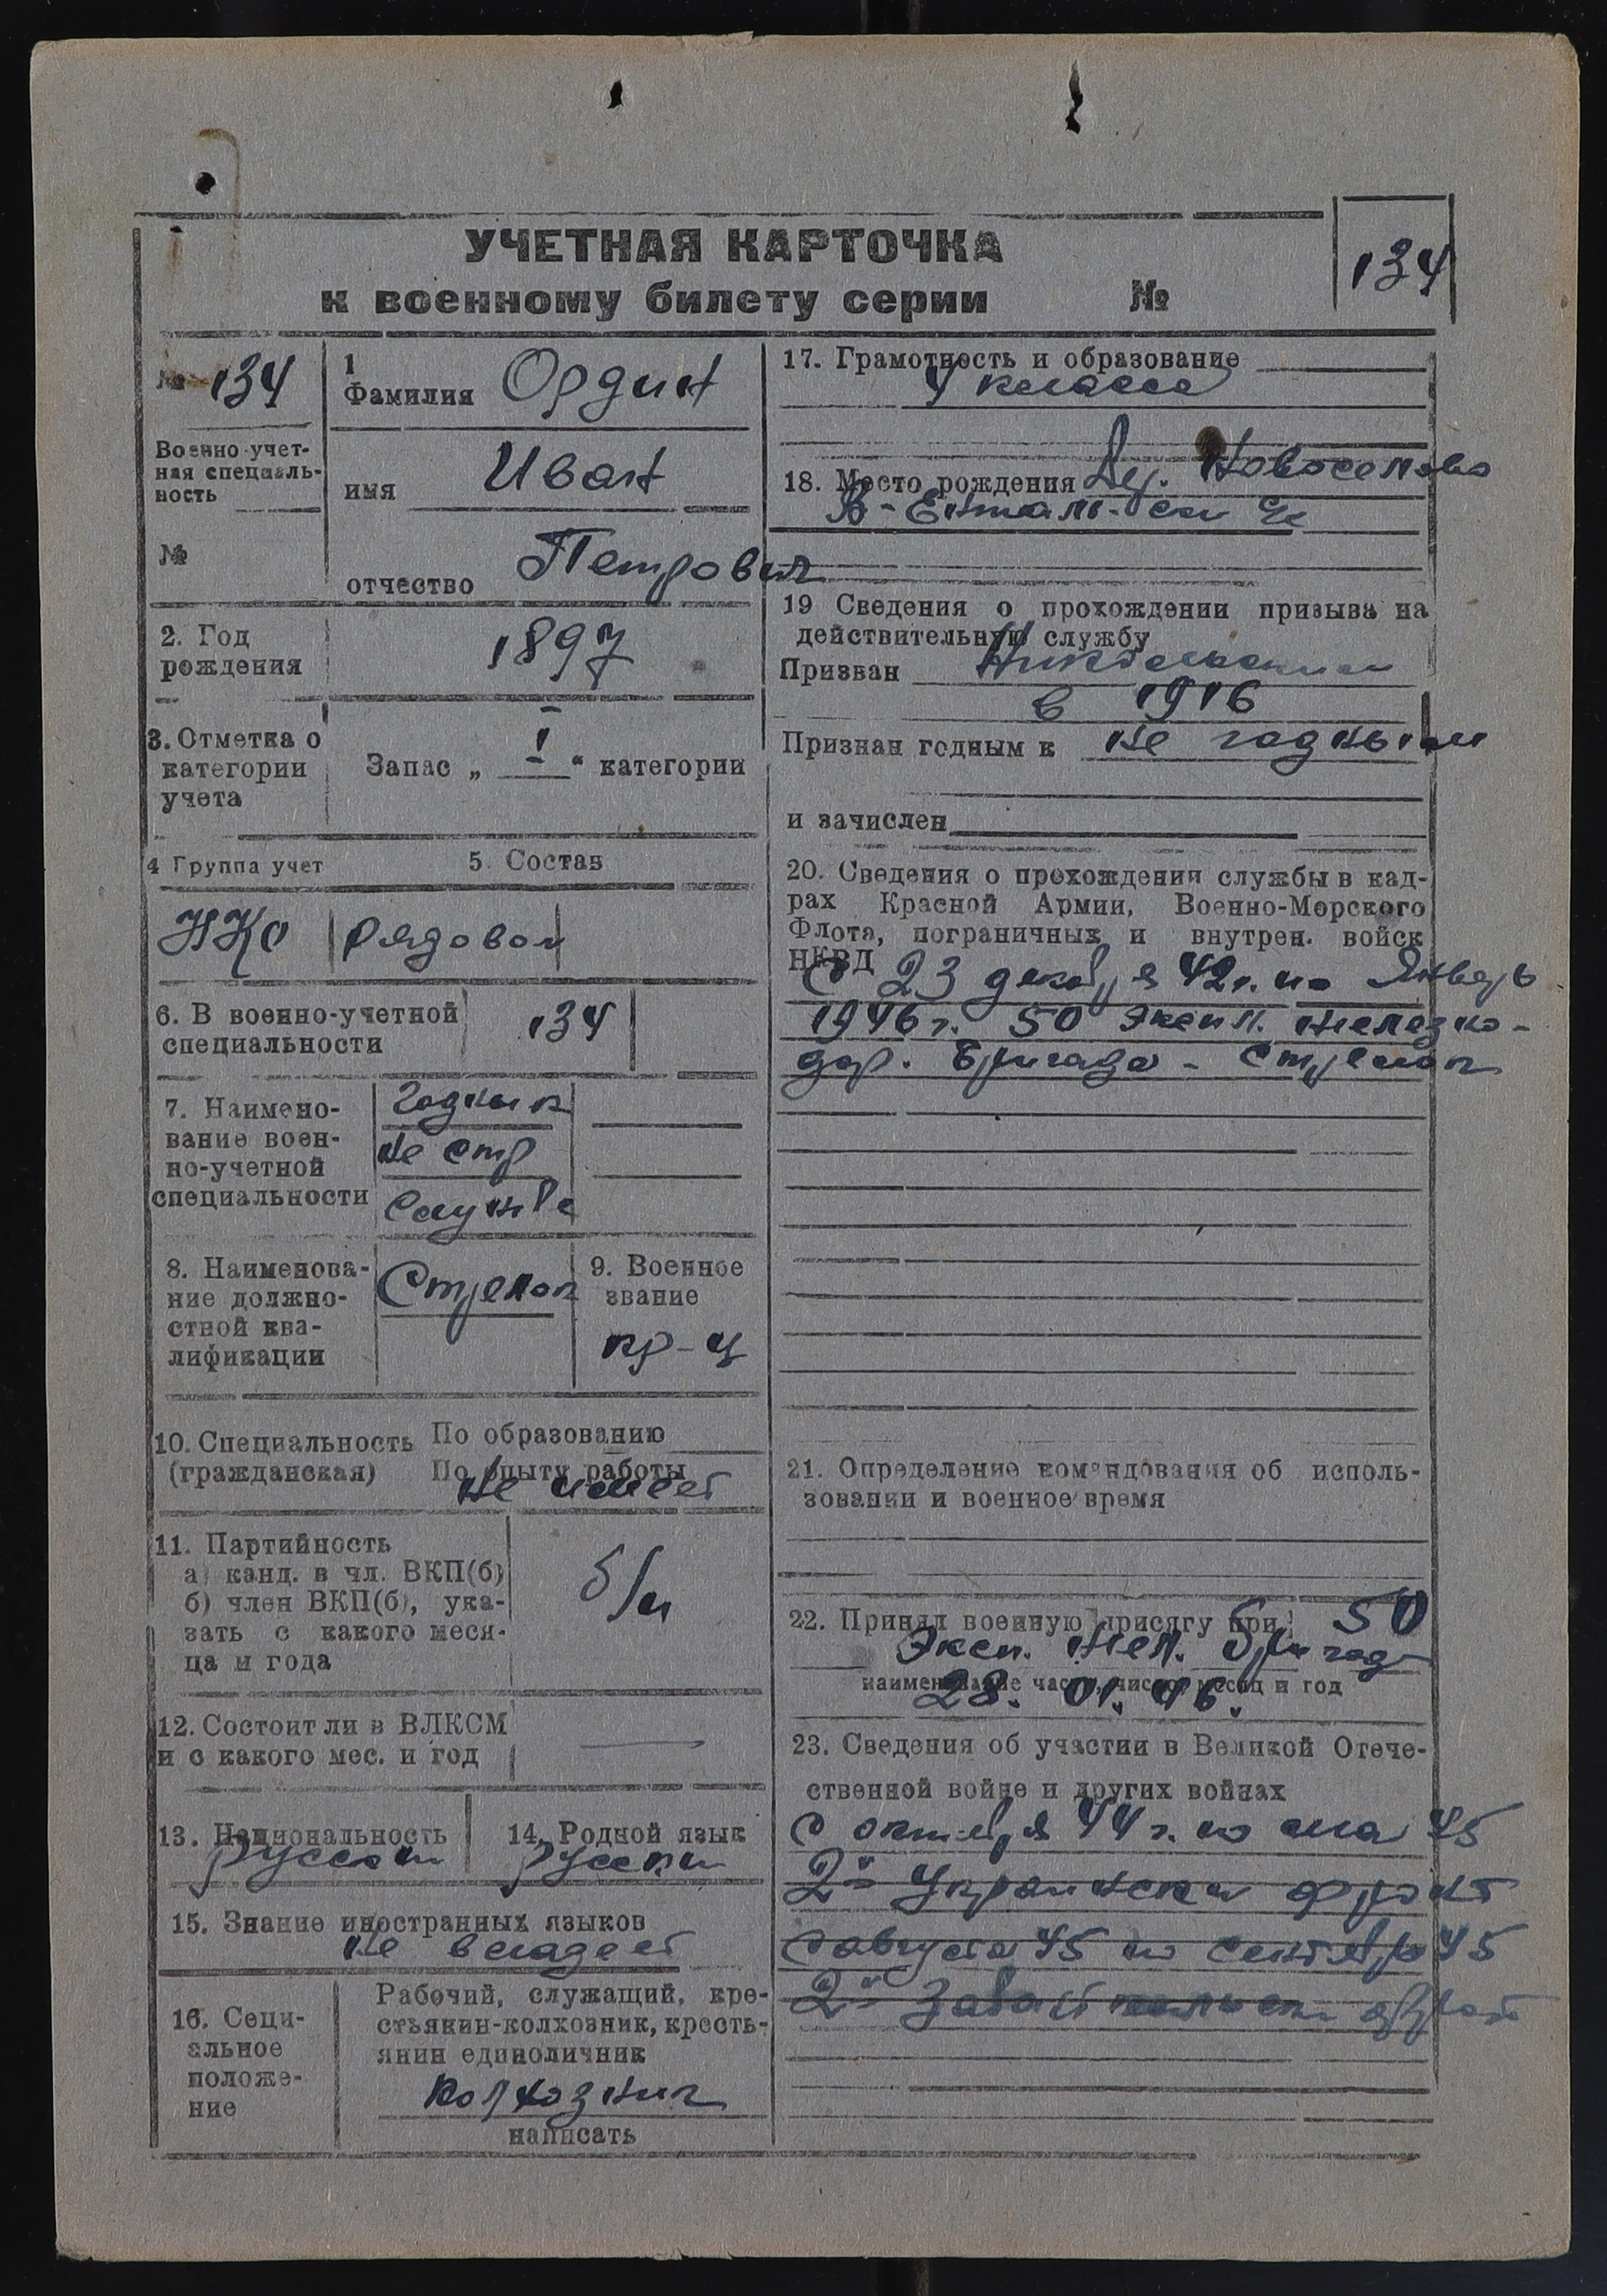 УЧЕТНАЯ КАРТОЧКА
к военному билету серии №
134
№ 134
Военно-учет-
ная специаль-
ность
№
1
Фамилия Ордин
имя Иван
отчество Петрович
2. Год
рождения
1897
3. Отметка о
категории
учета
Запас „ I “ категории
4 Группа учет
5. Состав
НКО
рядовой
6. В военно-учетной
специальности
134
7. Наимено-
вание воен-
но-учетной
специальности
годный к
не стр
службе
8. Наименова-
ние должно-
стной ква-
лификации
Стрелок
9. Военное
звание
кр-ц
10. Специальность
(гражданская)
По образованию
По опыту работы
не имеет
11. Партийность
а) канд. в чл. ВКП(б)
б) член ВКП(б), ука-
зать с какого меся-
ца и года
б/п
12. Состоит ли в ВЛКСМ
и с какого мес. и год
—
13. Национальность
русский
14. Родной язык
русский
15. Знание иностранных языков
не владеет
16. Соци-
альное
положе-
ние
Рабочий, служащий, кре-
стьянин-колхозник, кресть-
янин единоличник
колхозник
написать
17. Грамотность и образование
4 класса
18. Место рождения Дер. Новоселово
В-Ентальск
19 Сведения о прохождении призыва на
действительную службу
Призван Никольским
в 1916
Признан годным к не годным
и зачислен
20. Сведения о прохождении службы в кад-
рах Красной Армии, Военно-Морского
Флота, пограничных и внутрен. войск
НКВД
С 23 декабря 42г. по Январь
1946г. 50 Экспл. железно-
дор. Бригада - Стрелок
21. Определение командования об исполь-
зовании и военное время
22. Принял военную присягу при 50
Эксп. жел. бригад
наименование части, число месяц и год
28. 01. 46.
23. Сведения об участии в Великой Отече-
ственной войне и других войнах
С октября 44г. по май 45
2й Украински фронт
С августа 45 по сентябрь 45
2й фронт